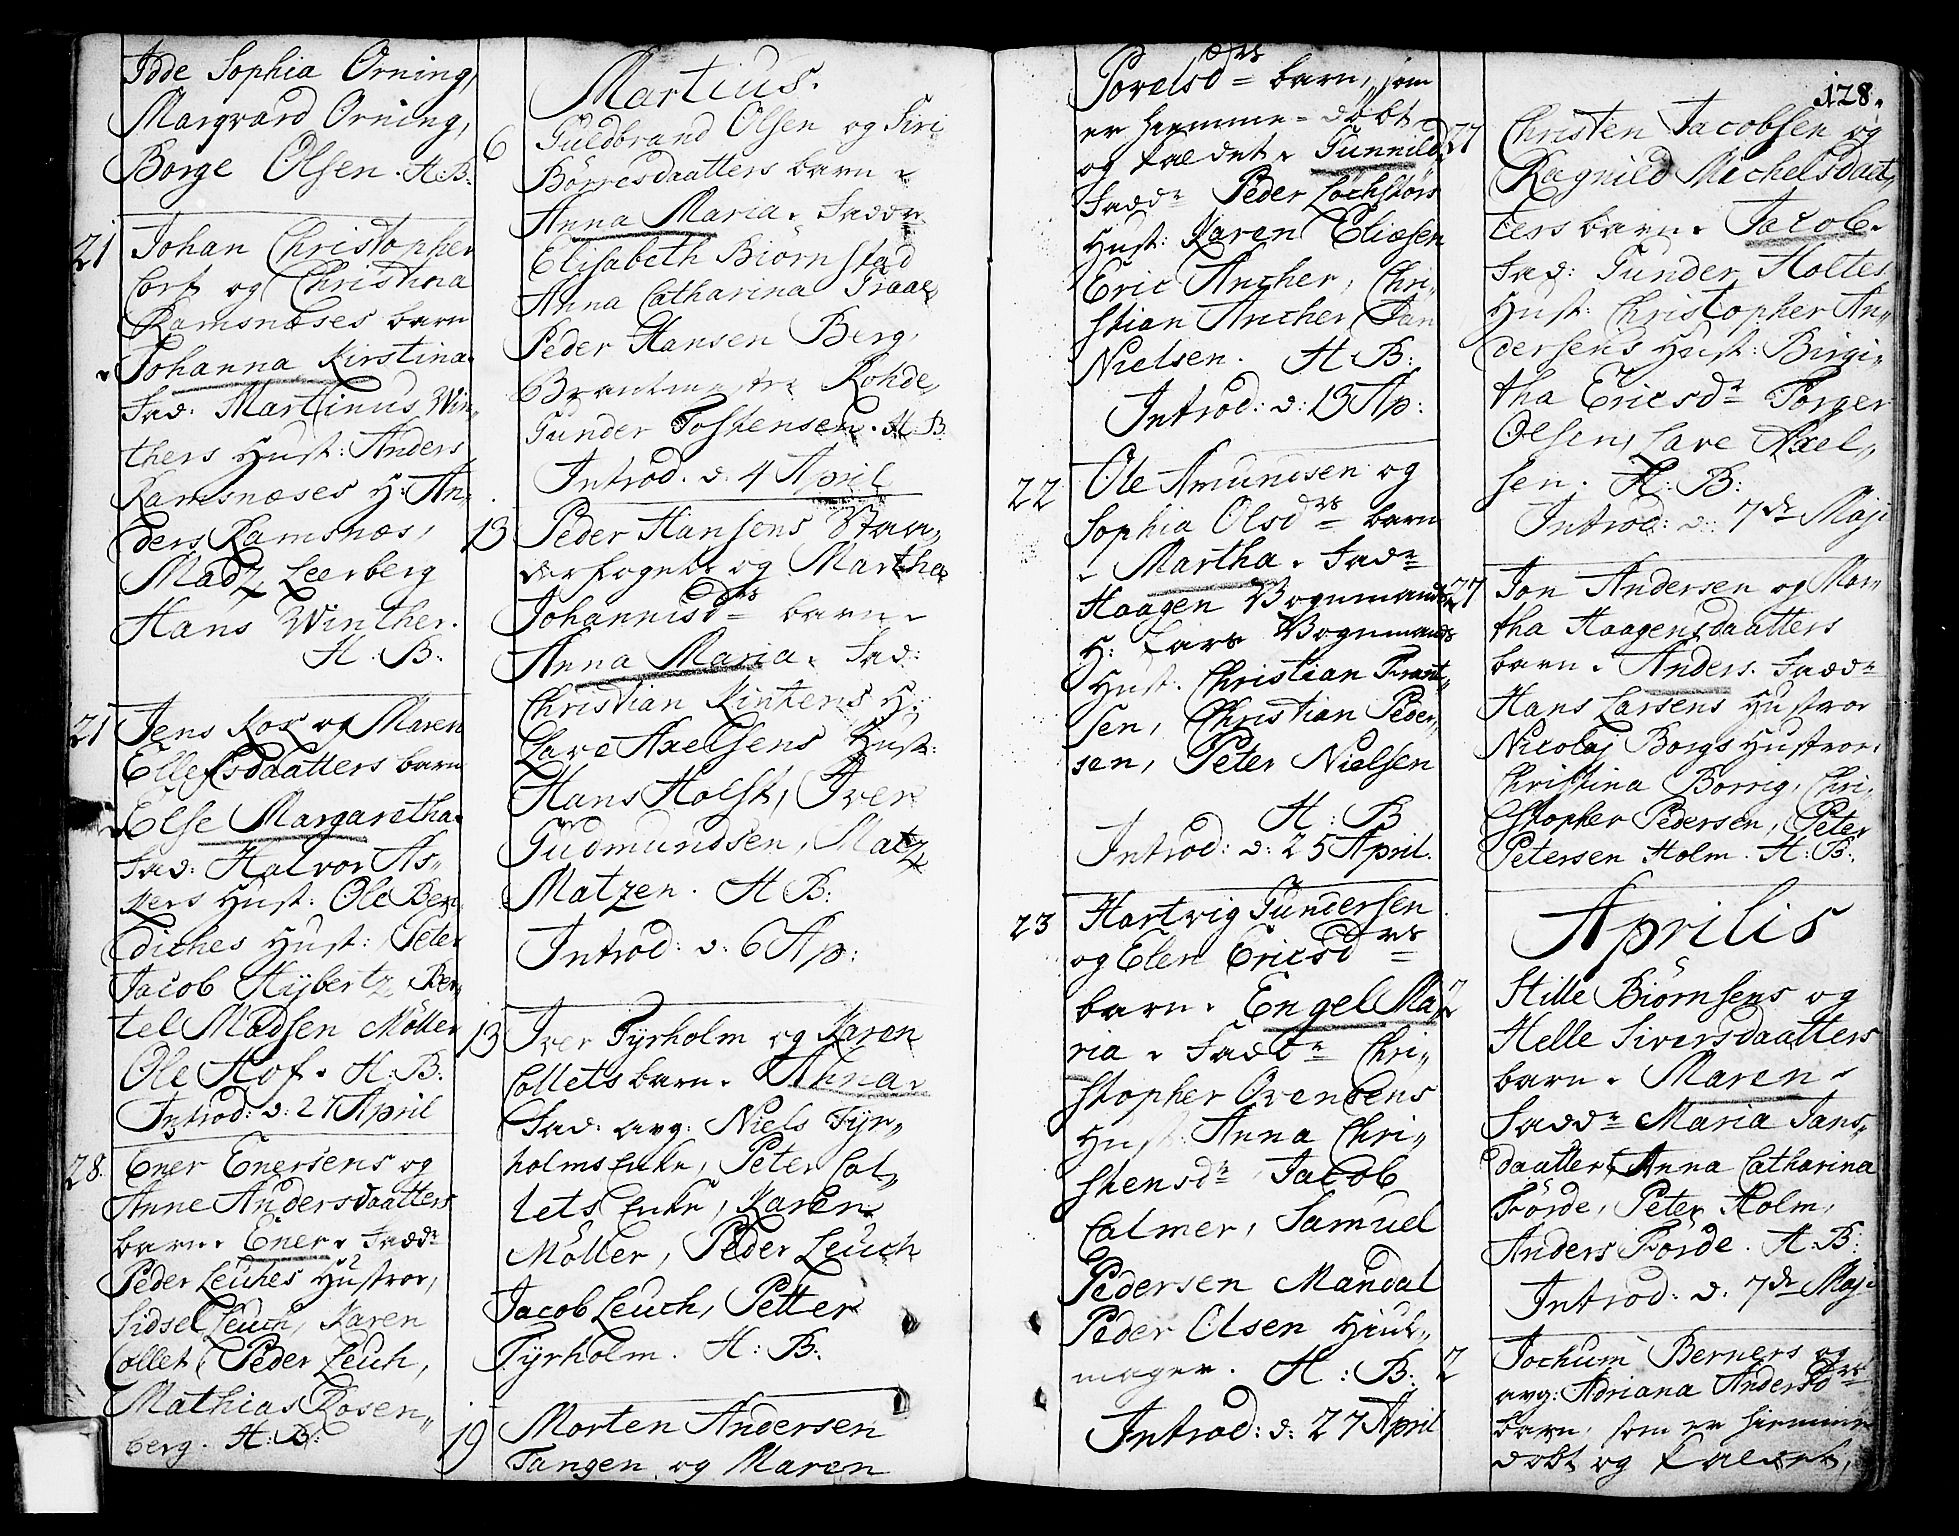 Idde Sophia Orning,
Marqvard Orning,
Borge Olsen. H:B:
21 Johan Christopher
Corf og Christina
Ramsnæses barn
Johanna Kirstina.
Fad: Martinus Win„
thers Hust: Anders
Ramsnæses H: An„
ders Ramsnæs,
Madz Leerberg
Hans Winther.
H. B:
21 Jens Kos og Maren
Ellefsdaatters barn
Else Margaretha.
Fad: Halvor As„
kers Hust: Ole Ben„
diches Hust: Peter
Jacob Hÿbertz, Ber„
tel Madsen Möller
Ole Hof. H:B:
Introd: d: 27 April
28. Ener Enersens og
Anne Andersdaatters
barn. Ener. Fadd:
Peder Leuches Hustror,
Sidsel Leuch, Karen
Collet, Peder Leuch,
Mathias Rosen„
berg. H:B:
Martius.
6 Guldbrand Olsen og Siri
Börresdaatters barn
Anna Maria. Fadd:
Elisabeth Biörnstad
Anna Catharina Fraae
Peder Hansen Berg,
Brantmestr Rohde,
Gunder Tostensen. H:B
Introd. d. 4 April
13 Peder Hansens
og Martha
Johannisdrs barn.
Anna Maria. Fad:
Christian Kintens H:
Lave Axelsens Hust:
Hans Holst, Iver
Gudmundsen, Matz
Matzen. H B:
Introd: d: 6 Ap:
13 Iver Tyrholm og Karen
Collets barn. Anna.
Fad: avg: Niels Tyr„
holms Enke, Peter Col„
lets Enke, Karen
Möller, Peder Leuch
Jacob Leuch, Petter
Tyrholm. H:B:
19 Morten Andersen
Tangen og Maren
Povelsdrs barn, som
er hiemme-döbt
og kaldet. Gunnild
Fadd: Peder Löchstörs
Hust: Karen Eliæsen
Eric Ancher, Chri„
stian Ancher, Jan
Nielsen. H B:
Introd: d: 13 Ap:
22 Ole Amundsen og
Sophia Olsdrs barn
Martha. Fadd:
Haagen Bognmands
H: Lars Bognmands
Hust. Christian Frant„
sen, Christian Peder„
sen, Peter Nielsen
H: B
Introd: d: 25 April.
23 Hartvig Gundersen
og Elen Ericsdrs
barn. Engel Ma„
ria. Fadd: Chri„
stopher Ovenbens
Hust: Anna Chri„
stensdr Jacob
Calmer, Samuel
Pedersen Mandal
Peder Olsen Hiul„
mager. H:B:
Introd: d: 27 April
128.
27 Christen Jacobsen og
Ragnild Michelsdaat„
ters barn. Jacob.
Fad: Gunder Holtes
Hust: Christopher An„
dersens Hust: Birgi„
tha Ericsdr Torger
Olsen, Lave Axel„
sen. H. B:
Introd: d: 7de Maji
27 Jon Andersen og Mar„
tha Haagensdaatters
barn. Anders. Fadd:
Hans Larsens Hustror
Nicolaj Borgs Hustror.
Christina Borrig, Chri„
stopher Pedersen, Peter
Petersen Holm. H:B:
Aprilis
2 Stille Biörnsens og
Helle Siversdaatters
barn. Maren.
Fadd: Maria Jans„
daatter, Anna Catharina
Förde, Peter Holm,
Anders Förde. H:B:
Introd: d. 7de Maji
2 Jochum Berners og
avg: Adriana Andersdrs
barn, som er hiemme
döbt og kaldet,